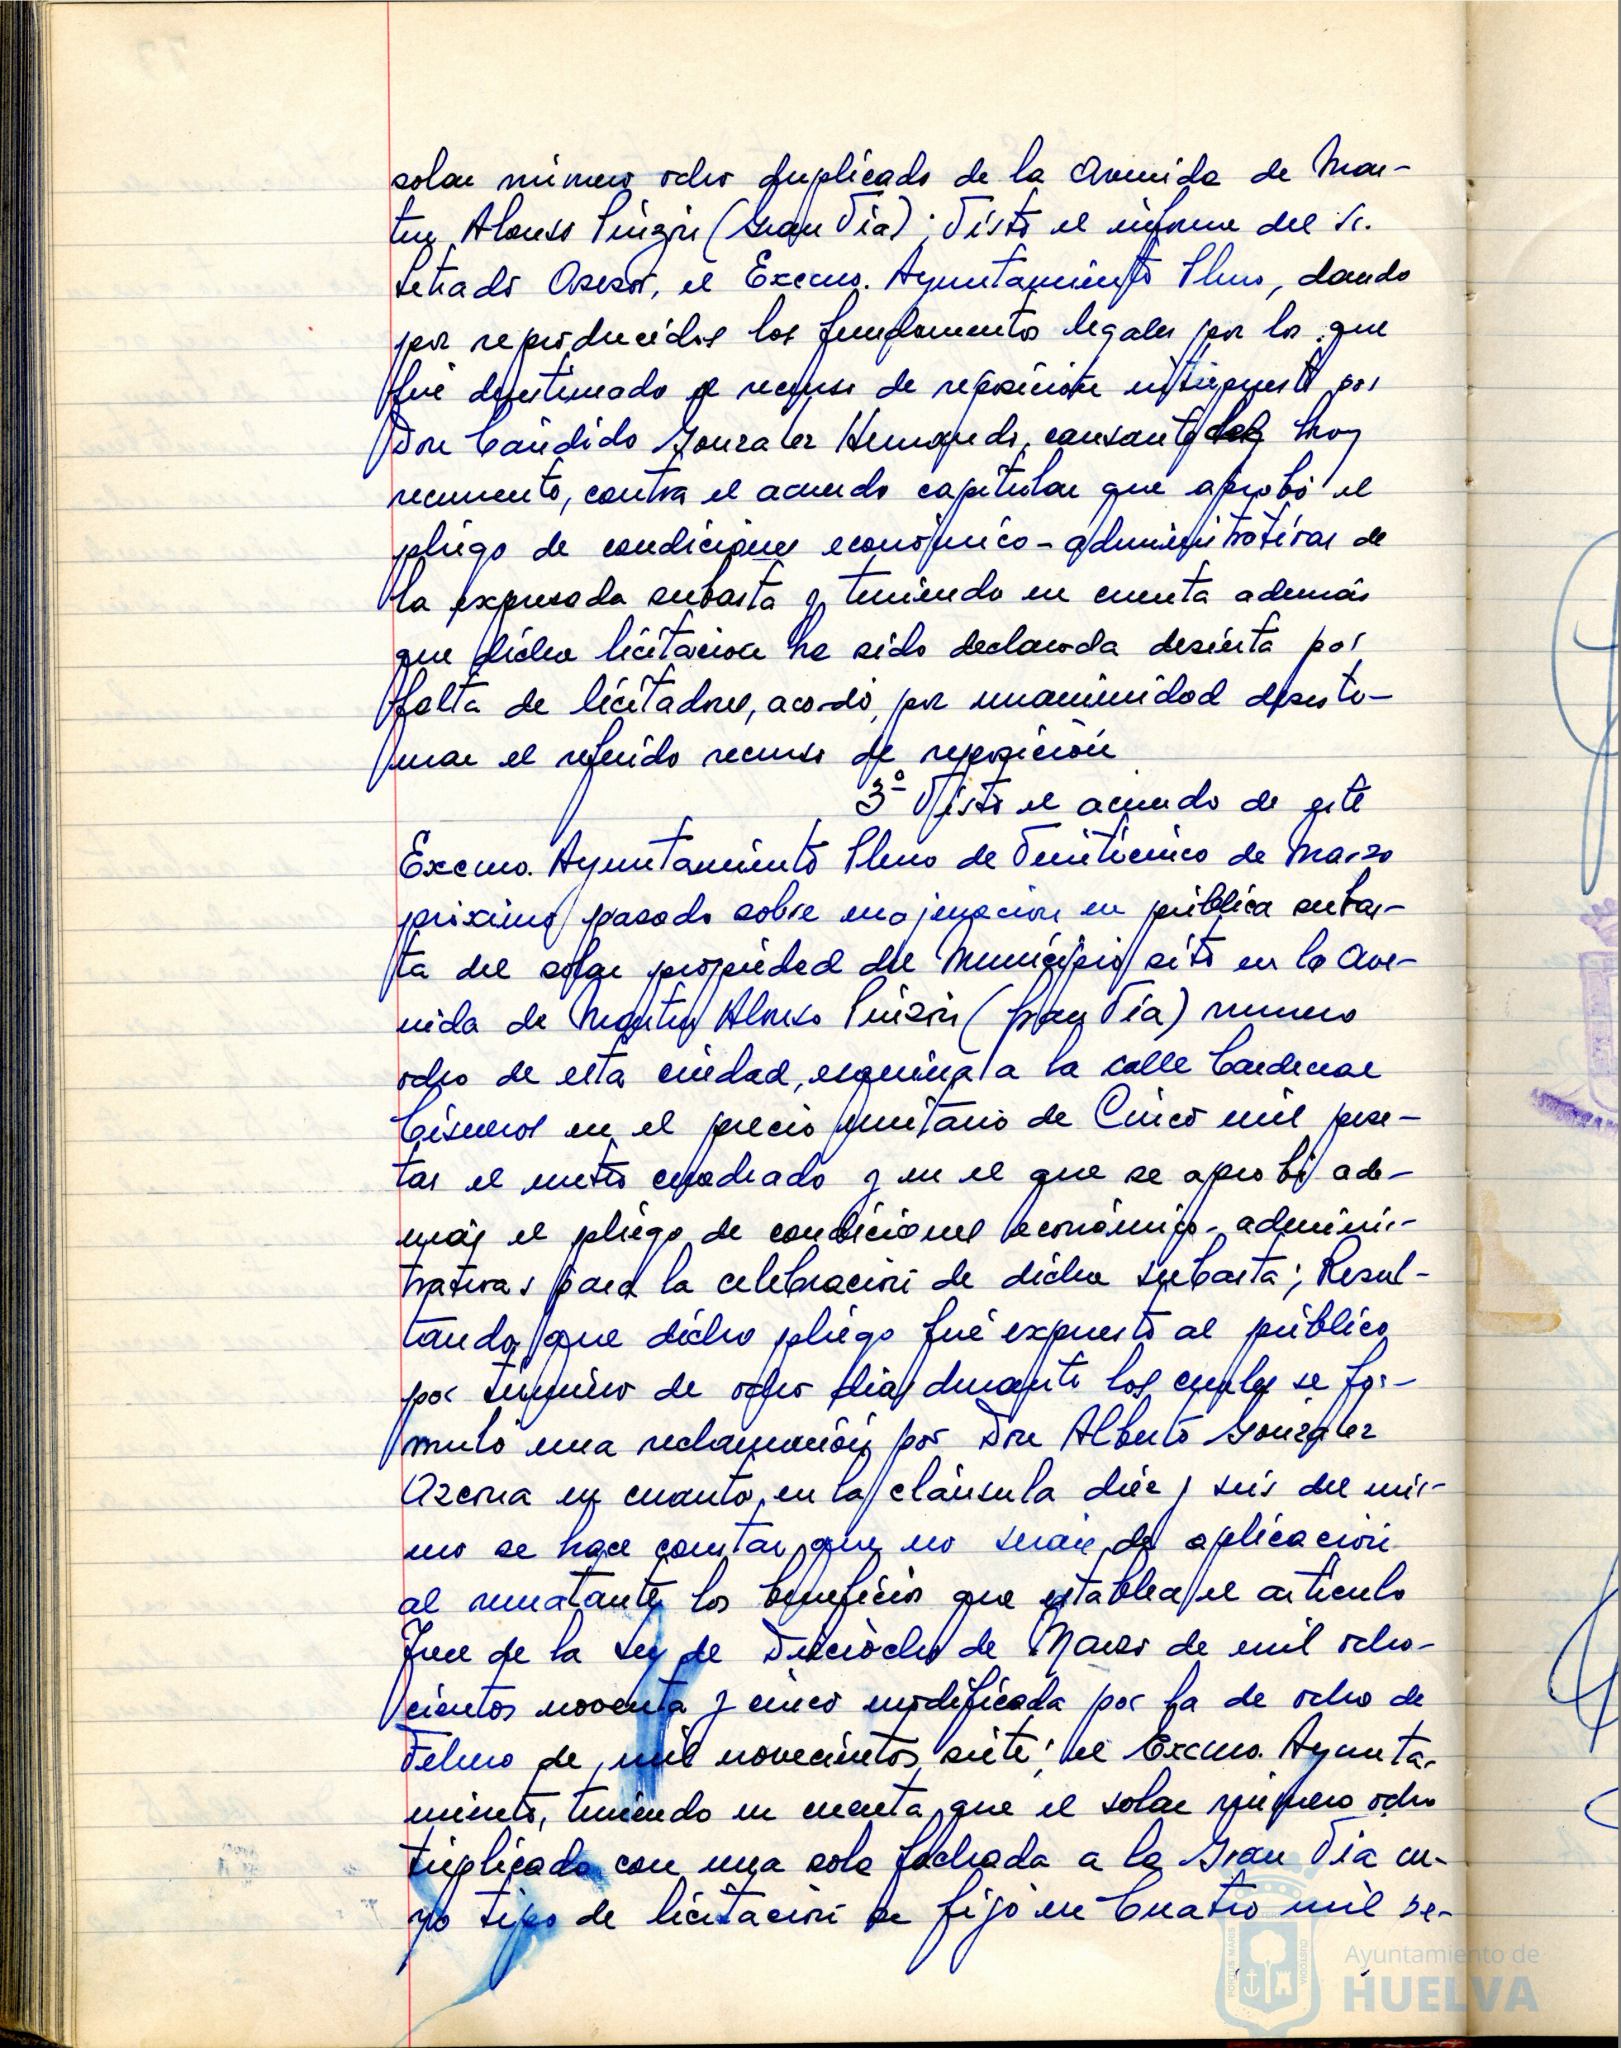 solar número ocho duplicado de la Avenida de Mar-
tín Alonso Pinzón (Gran Vía); Visto el informe del Sr.
Letrado Asesor, el Excmo. Ayuntamiento Pleno, dando
por reproducidos los fundamentos legales por los que
fué desestimado el recurso de reposición interpuesto por
Don Cándido Gonzalez Hernando, causante del hoy
recurrente, contra el acuerdo capitular que aprobó el
pliego de condiciones económico-administrativas de
la expresada subasta y teniendo en cuenta además
que dicha licitación ha sido declarada desierta por
falta de licitadores, acordó, por unanimidad desesti-
mar el referido recurso de reposición
3º Visto el acuerdo de este
Excmo. Ayuntamiento Pleno de Veinticinco de Marzo
próximo pasado sobre enajenación en pública subas-
ta del solar propiedad del Municipio sito en la Ave-
nida de Martín Alonso Pinzón (Gran Vía) numero
ocho de esta ciudad, esquina a la calle Cardenal
Cisneros en el precio unitario de Cinco mil pese-
tas el metro cuadrado y en el que se aprobó ade-
más el pliego de condiciones económico-adminis-
trativas para la celebración de dicha subasta; Resul-
tando que dicho pliego fué expuesto al público
por término de ocho dias durante los cuales se for-
muló una reclamación por Don Alberto González
Azcona en cuanto en la cláusula diez y seis del mis-
mo se hace constar que no serán de aplicación
al rematante los beneficios que establece el artículo
Trece de la Ley de Dieciocho de Marzo de mil ocho-
cientos noventa y cinco modificada por la de ocho de
Febrero de mil novecientos siete; el Excmo. Ayunta-
miento, teniendo en cuenta que el solar número ocho
triplicado con una sola fachada a la Gran Vía cu-
yo tipo de licitación se fijó en Cuatro mil se-
Ayuntamiento de
HUELVA